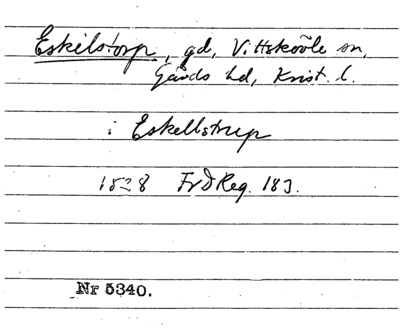 Eskilstorp, gd, Vittskövle sn,
Gärds hd, Krist. l.
i Eskellstrup
1528 FrdReg. 183.
Nr 5340.